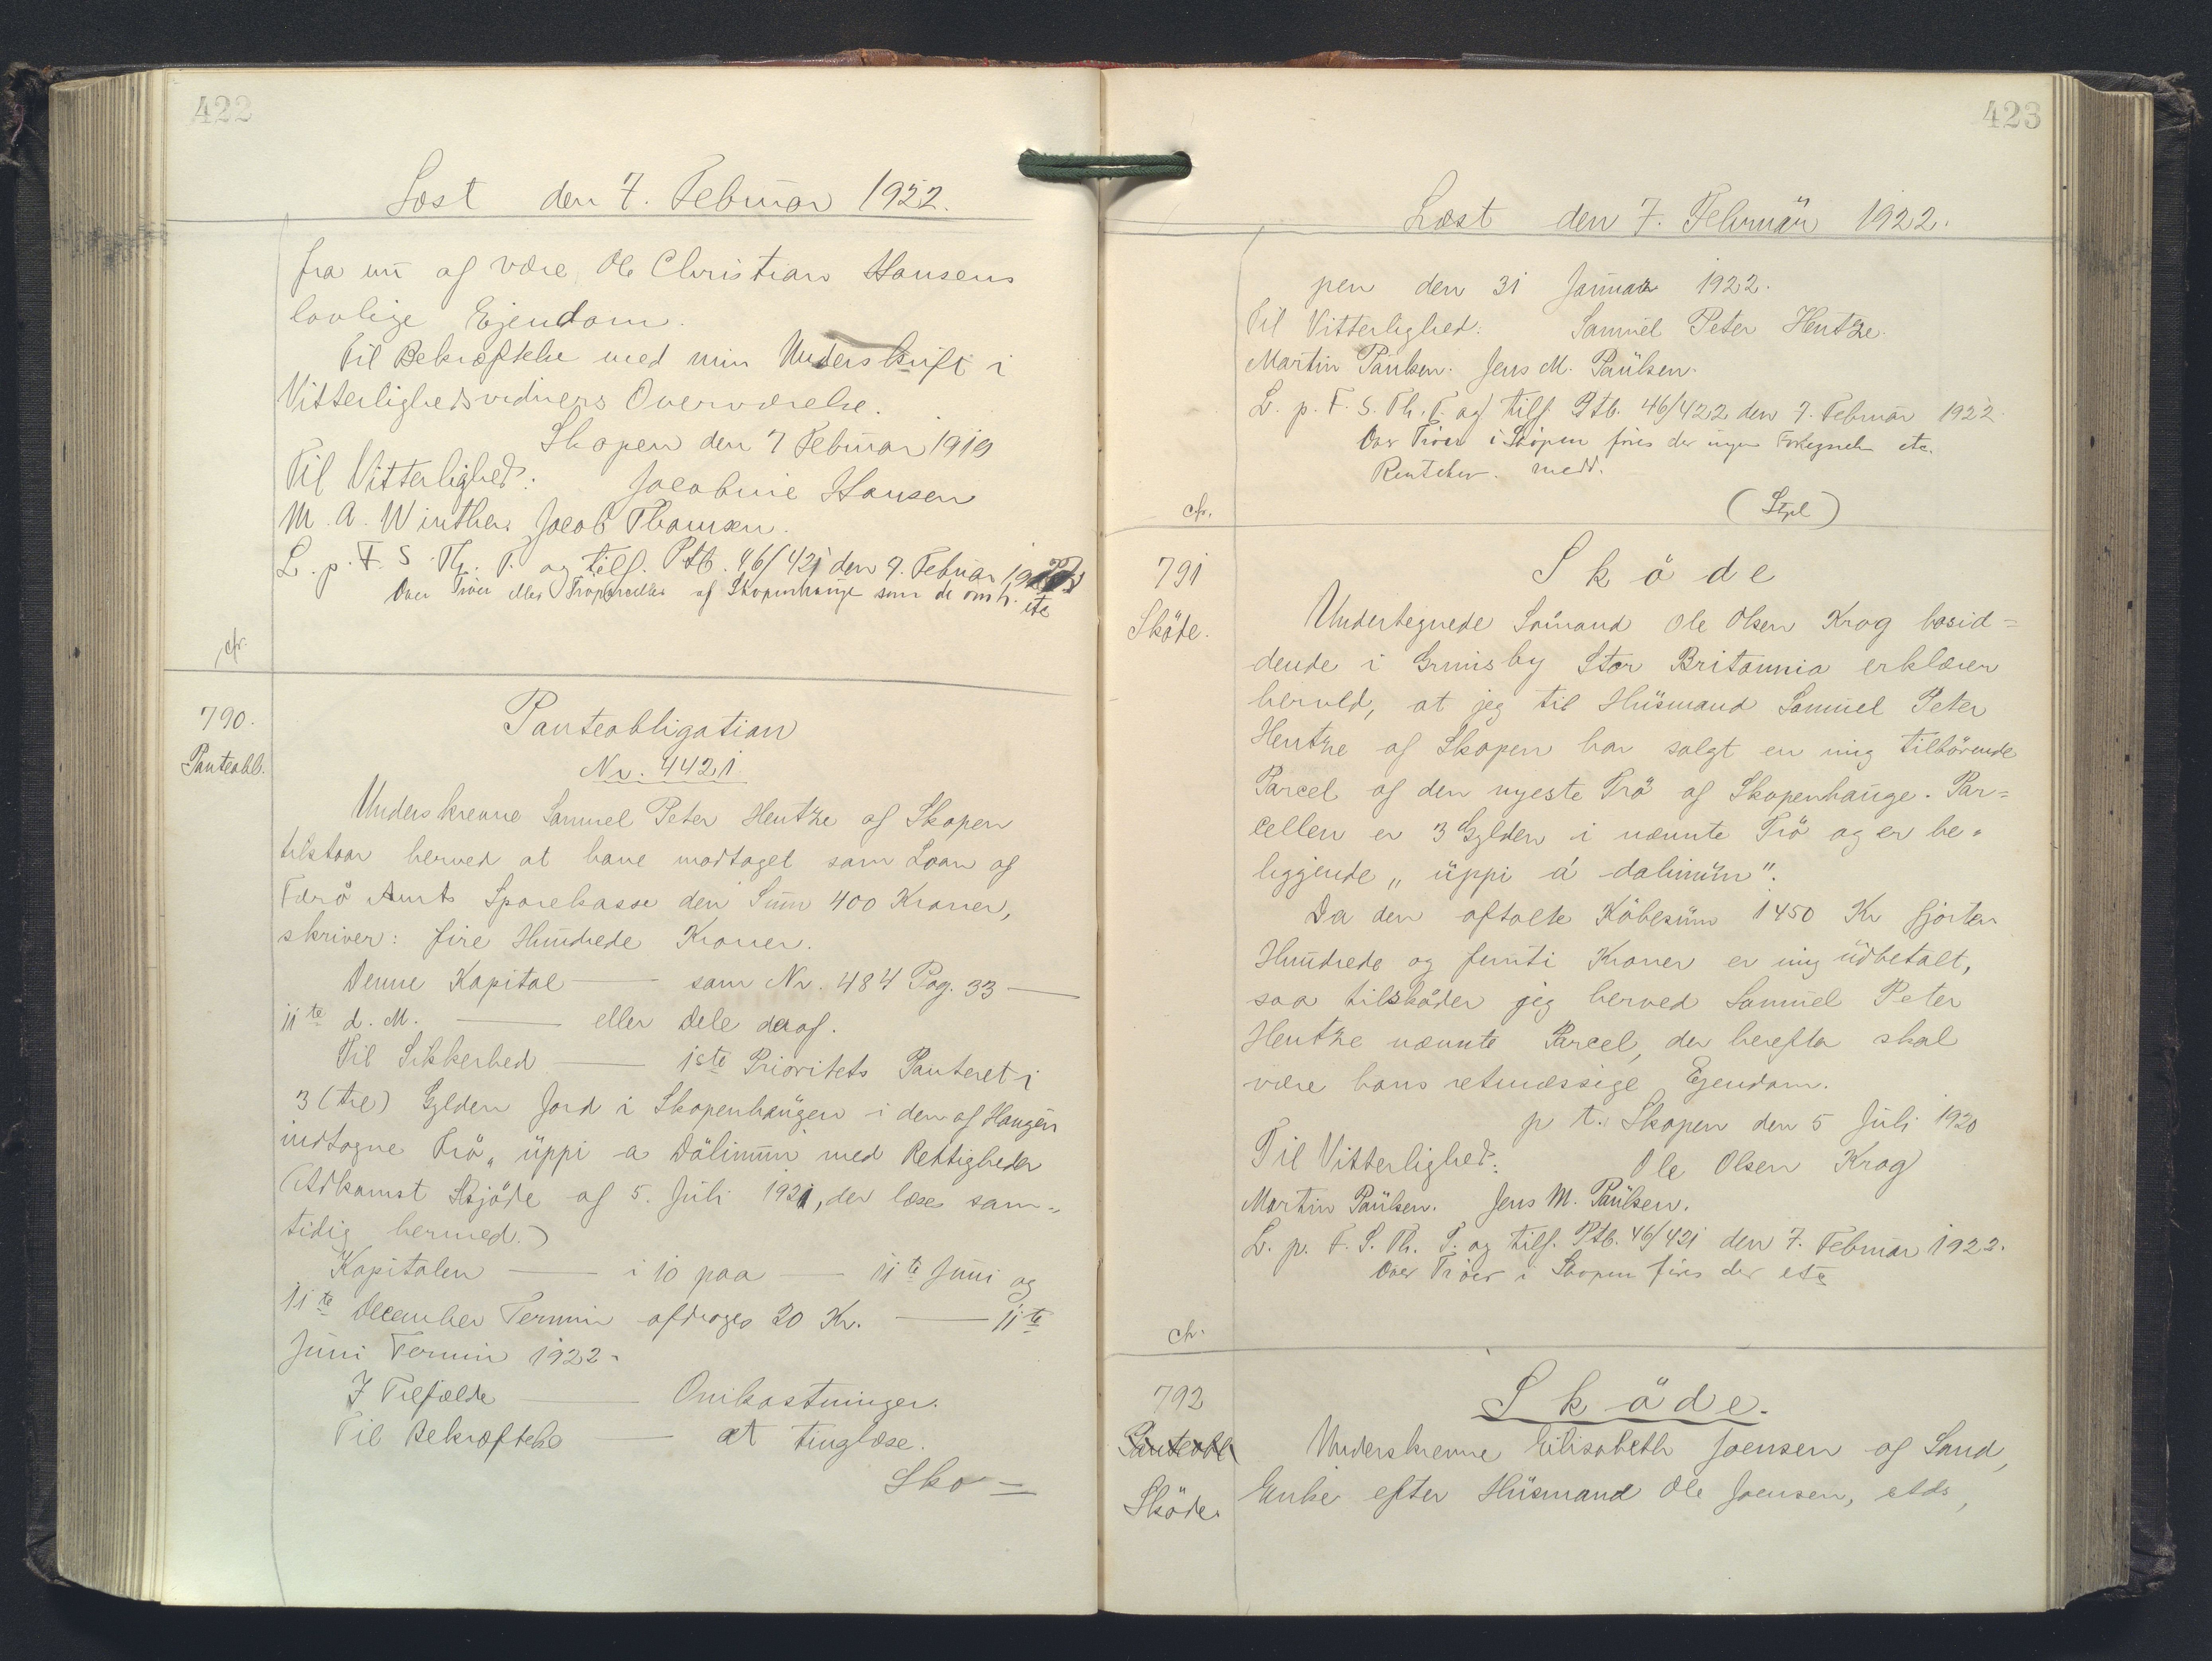 422
Læst den 7. Februar 1922.
fra nu af være Ole Christian Hansens
lovlige Ejendom.
Til Bekræftelse med min Underskrift i
Vitterlighedsvidners Overværelse.
Skopen den 7 Februar 1919
Til Vitterlighed: Jacobine Hansen
M. A. Winther. Jacob Thomsen.
L. p. F. S. Th. P. og tilf. Ptb. 46/421 den 7. Februar
Over Tröer eller Tröparceller af Skopenhauge som de omh. etc
cfr.
790.
Panteobl.
Panteobligation
Nr. 4421
Underskrevne Samuel Peter Hentze af Skopen
tilstaar herved at have modtaget som Laan af
Færö Amts Sparekasse den Sum 400 Kroner,
skriver: fire Hundrede Kroner.
Denne Kapital — som Nr. 484 Pag. 33 —
11te d. M. — eller Dele deraf.
Til Sikkerhed — 1ste Prioritets Panteret i
3 (tre) Gylden Jord i Skopenhaugen i den af Haugen
indtagne Trö „ uppi a Dálimum med Rettigheder
(Adkomst Skjöde af 5. Juli 1921, der læses sam-
tidig hermed.)
Kapitalen — i 10 paa — 11te Juni og
11te December Termin afdrages 20 Kr. — 11te
Juni Termin 1922.
I Tilfælde — Omkostninger.
Til Bekræftelse — at tinglæse.
Sko=
423
Læst den 7. Februar 1922.
pen den 31 Januar 1922.
Til Vitterlighed: Samuel Peter Hentze.
Martin Paulsen. Jens M. Paulsen.
L. p. F. S. Th. P. og tilf. Ptb. 46/422 den 7. Februar 1922.
Over Tröer i Skopen föres der ingen etc.
medd.
(Stpl)
cfr.
791
Sköde.
Sköde
Undertegnede Sömand Ole Olsen Krog bosid=
dende i Grimsby Stor Britannia erklærer
herved, at jeg til Husmand Samuel Peter
Hentze af Skopen har solgt en mig tilhörende
Parcel af den nyeste Trö af Skopenhauge. Par=
cellen er 3 Gylden i nævnte Trö og er be=
liggende „ uppi á dalimum".
Da den aftalte Köbesum 1450 Kr fjorten
Hundrede og femti Kroner er mig udbetalt,
saa tilsköder jeg herved Samuel Peter
Hentze nævnte Parcel, der herefter skal
være hans retmæssige Ejendom.
p t. Skopen den 5 Juli 1920
Til Vitterlighed: Ole Olsen Krog
Martin Paulsen. Jens M. Paulsen.
L. p. F. S. Th. P. og tilf. Ptb. 46/421 den 7. Februar 1922.
Over Tröer i Skopen föres der etc
cfr.
792
Panteobl
Sköde.
Sköde.
Underskrevne Elisabeth Joensen af Sand,
Enke efter Husmand Ole Joensen, stds,